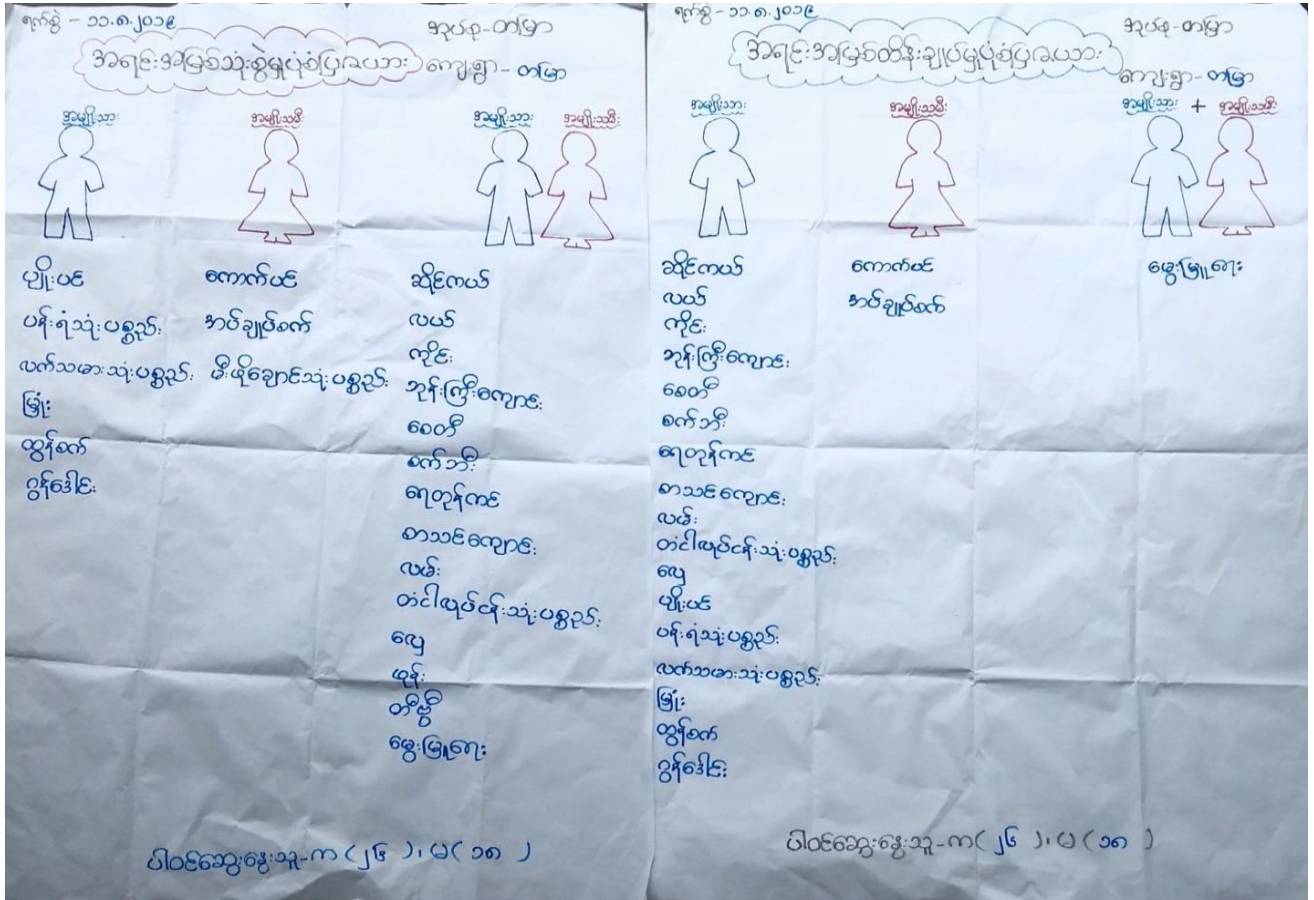 ရက်စွဲ - ၁၁.၈.၂၀၁၉
အုပ်စု-တမြာ
အရင်းအမြစ်သုံးစွဲမှုပုံစံပြဇယား
ကျေးရွာ-တမြာ
အမျိုးသား
အမျိုးသမီး
အမျိုးသား အမျိုးသမီး
ပျိုးပင်
ပန်းရံသုံးပစ္စည်း
လက်သမားသုံးပစ္စည်း
မြုံး
ထွန်စက်
ဂွန်ဒေါင်း
ကောက်ပင်
အပ်ချုပ်စက်
မီးဖိုချောင်သုံးပစ္စည်း
ဆိုင်ကယ်
လယ်
ကိုင်း
ဘုန်းကြီးကျောင်း
စေတီ
စက်ဘီး
ရေတုန်ကင်
စာသင်ကျောင်း
လမ်း
တံငါလုပ်ငန်းသုံးပစ္စည်း
လှေ
ဖုန်း
တီဗွီ
မွေးမြူရေး
ပါဝင်ဆွေးနွေးသူ-က(၂၆)၊ မ(၁၈)
ရက်စွဲ - ၁၁.၈.၂၀၁၉
အုပ်စု-တမြာ
အရင်းအမြစ်ထိန်းချုပ်မှုပုံစံပြဇယား
ကျေးရွာ-တမြာ
အမျိုးသား
အမျိုးသမီး
အမျိုးသား + အမျိုးသမီး
ဆိုင်ကယ်
လယ်
ကိုင်း
ဘုန်းကြီးကျောင်း
စေတီ
စက်ဘီး
ရေတုန်ကင်
စာသင်ကျောင်း
လမ်း
တံငါလုပ်ငန်းသုံးပစ္စည်း
လှေ
ပျိုးပင်
ပန်းရံသုံးပစ္စည်း
လက်သမားသုံးပစ္စည်း
မြုံး
ထွန်စက်
ဂွန်ဒေါင်း
ကောက်ပင်
အပ်ချုပ်စက်
မွေးမြူရေး
ပါဝင်ဆွေးနွေးသူ-က(၂၆)၊ မ(၁၈)